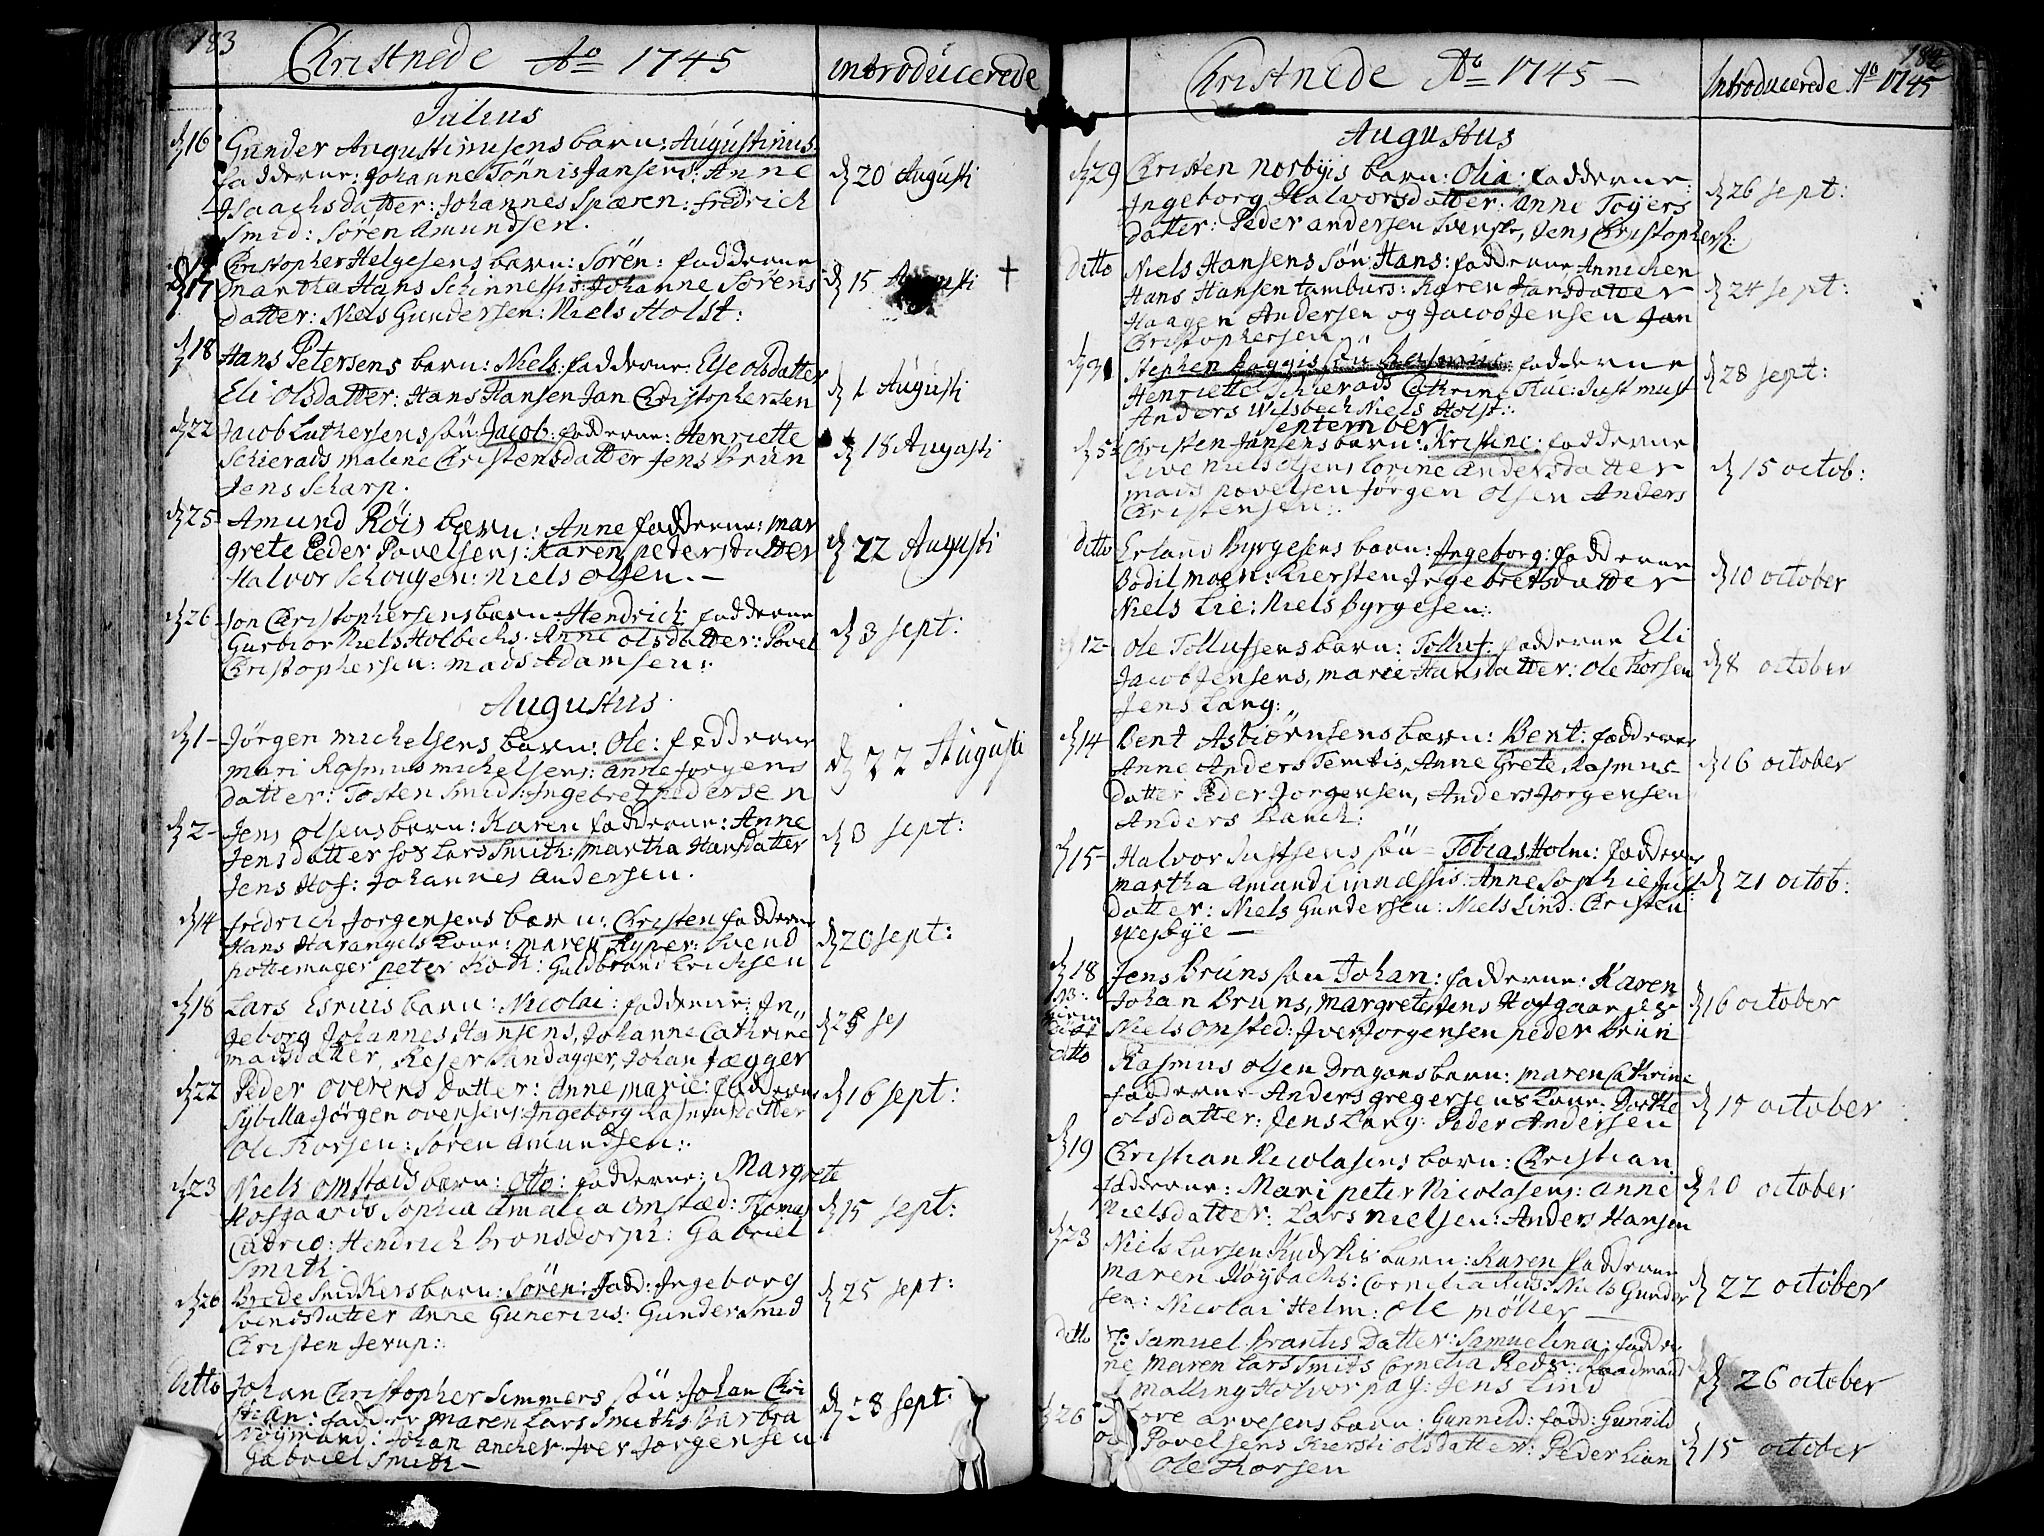 183
Christnede Aō 1745
introducerede
Julius
16 Gunder Augustinusens barn: Augustinus
fadderne: Johanne Tønnis Jansens: Anne
Isaachsdatter: Johannes Spæren: fridrich
Smid: Søren Amundsen.
20 Augusti
17 Christopher Helgesens barn: Sören: fadderne
martha Hans Schinnessis: Johanne Sörens
datter: Niels Gundersen: Niels Holst:
15 Augusti
18 Hans Petersens barn: Niels: fadderne: Else olsdatter
Eli Olsdatter: Hans Hansen Jan Christophersen
1 Augusti
22 Jacob Luthersens sön: Jacob: fadderne: Henriette
Schierads malene Christensdatter Jens Brun
Jens Scharp.
18 Augusti
25 Amund Röis barn: Anne fadderne: mar
grete Peder Povelsens: Karen pedersdatter
Halvor Schougen: Niels olsen. —
22 Augusti
26 Jon Christophersens barn: Hendrich fadderne
Gurbior Niels Holbechs: Anne olsdatter: Povel
Christophersen: mads Adamsen:
3 sept:
Augustus
1 Jörgen michelsens barn: Ole: fadderne
mari Rasmus michelsens: anne Jorgens
datter: Tosten Smid: Ingebret pedersen
22 Augusti
2 Jens olsens barn: Karen fadderne: Anne
Jensdatter hos Lars Smith: martha Hansdatter
Jens Hof: Johannes Andersen.
3 sept:
14 fridrich Jorgensens barn: Christen fadderne
Hans Harangels kone: maren Ryper: Svend
pottemager peter Koth: Guldbrand Erichsen
20 sept:
18 Lars Esruis barn: Nicolai: fadderne: In
geborg Johannes Hansens, Johanne Cathrine
madsdatter, Rejer Sandagger, Johan Jægger
22 Peder overens Datter: Anne marie: fadderne
Sybilla Jörgen ovensens: Ingeborg Rasmusdatter
Ole Thorsen: Sören Amundsen:
16 sept:
23 Niels omstæds barn: Otto: fadderne: Margrete
Hofgaards Sophia Amalia Omstæd: Thomas
Cadrio: Hendrich Bronsdorph: Gabriel
Smith.
15 sept:
26 Brede Smidkers barn: Sören: fadd: Ingeborg
Svendsdatter Anne Gunerius: Gunder Smid
Christen Jerup:
25 sept:
ditto Johan Christopher Simmers sön Johan Chri
stian: fadder maren Lars Smiths Barbra
Neymand: Johan Ancher Iver Jorgensen
Gabriel Smith —
28 sept
184
Christnede Aō 1745 —
Introducerede Aō 1745
Augustus
29 Christen Norbyis barn: Olia: fadderne:
Ingeborg Halvorsdatter: Anne Toyers
datter: Peder andersen Svenske, Jens Christophers:
26 sept:
ditto Niels Hansens sön Hans: fadderne Annichen
Hans Hansen tamburs: Karen Hansdatter
Haagen Andersen og Jacob Jensen Jan
Christophersen
24 sept:
31 Stephen Baggis sön Rasmus: fadderne
Henriette Schierads Cathrine Thue: Just must
Anders Wilsbech Niels Holst:
28 sept:
September
5 Christen Jansens barn: Kristine: fadderne
Live Niels olsens Corine Andersdatter
mads povelsen Jörgen olsen Anders
Christensen:
15 octob:
ditto Erland Byrgesens barn: Ingeborg: fadderne
Bodil moen: Kiersten Ingebretsdatter
Niels Lie: Niels Byrgesen:
10 october
12 Ole Tollufsens barn: Tolluf: fadderne Eli
Jacob Jensens, marie Hansdatter: Ole Thorsen
Jens Lang:
8 october
14 Bent Asbiörnsens barn: Bent: fadderne
Anne Anders Temtis, Anne Grete Rasmus
datter Peder Jorgensen, Anders Jorgensen
Anders Rauch:
16 october
15 Halvor Justsens sön — Tobias Holm: fadderne
martha Amund Linnæssis: Anne Sophie Juls
datter: Niels Gundersen: Niels Lind: Christen
Wesbye —
21 octob:
18 Jens Bruns søn Johan: fadderne: Karen
Johan Bruns, margrete Jens Hofgaardes
Niels Omsted: Iver Jorgensen peder brun
16 october
ditto Rasmus olsen Dragons barn: maren Cathrine
fadderne Anders gregersens kone: Dorthe
olsdatter: Jens Lang: Peder Andersen
october
19 Christian Nicolasens barn: Christian.
fadderne: Mari peter Nicolasens: anne
Nielsdatter: Lars Nielsen: Anders Hansen
october
23 Niels Larsen barn: Karen fadderne
maren Höybachs: Cornelia Rids: Niels Gunder
sen: Nicolai Helm: Ole möller —
22 october
ditto Samuel Brantis Datter: Samuelina: fadder
ne maren Lars Smits Cornelia Reds: Raadmand
malling Holvor pag: Jens Lind
26 october
26 Tore arvesens barn: Gunnild: fadd: Gunnild
Povelsens Kiersti olsdatter: Peder Lian
Ole Thorsen
15 october